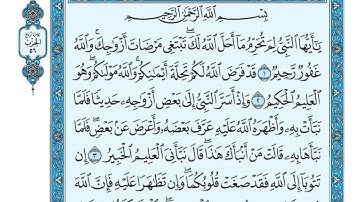 بِسْمِ اللَّهِ الرَّحْمَٰنِ الرَّحِيمِ
يَا أَيُّهَا النَّبِيُّ لِمَ تُحَرِّمُ مَا أَحَلَّ اللَّهُ لَكَ تَبْتَغِي مَرْضَاتَ أَزْوَاجِكَ وَاللَّهُ
غَفُورٌ رَّحِيمٌ ١ قَدْ فَرَضَ اللَّهُ لَكُمْ تَحِلَّةَ أَيْمَانِكُمْ وَاللَّهُ مَوْلَاكُمْ وَهُوَ
الْعَلِيمُ الْحَكِيمُ ٢ وَإِذْ أَسَرَّ النَّبِيُّ إِلَىٰ بَعْضِ أَزْوَاجِهِ حَدِيثًا فَلَمَّا
نَبَّأَتْ بِهِ وَأَظْهَرَهُ اللَّهُ عَلَيْهِ عَرَّفَ بَعْضَهُ وَأَعْرَضَ عَنْ بَعْضٍ فَلَمَّا
نَبَّأَهَا بِهِ قَالَتْ مَنْ أَنْبَأَكَ هَٰذَا قَالَ نَبَّأَنِيَ الْعَلِيمُ الْخَبِيرُ ٣ إِنْ
تَتُوبَا إِلَى اللَّهِ فَقَدْ صَغَتْ قُلُوبُكُمَا وَإِنْ تَظَاهَرَا عَلَيْهِ فَإِنَّ اللَّهَ